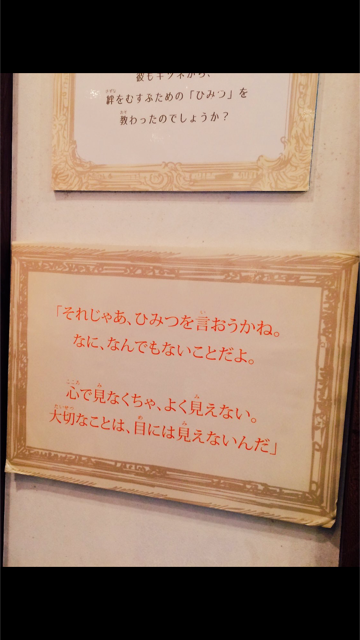 彼もキツネから、
絆をむすぶための「ひみつ」を
教わったのでしょうか？
「それじゃあ、ひみつを言おうかね。
なに、なんでもないことだよ。
心で見なくちゃ、よく見えない。
大切なことは、目には見えないんだ」